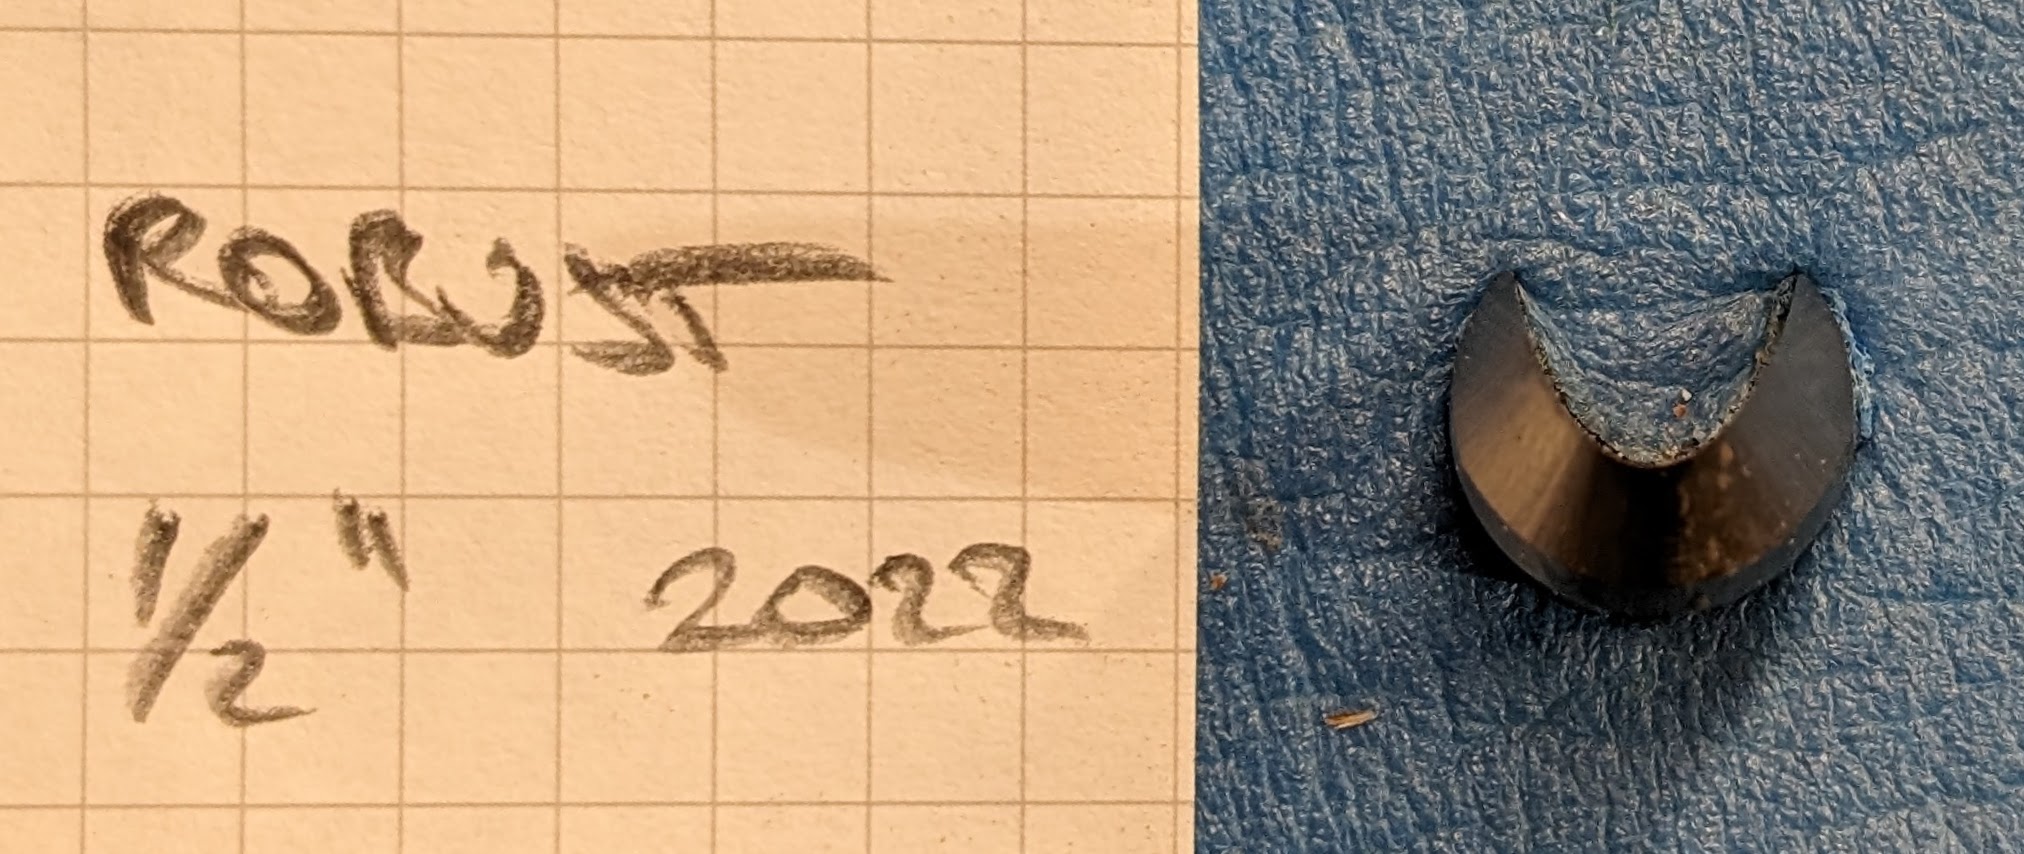 ROBUST
1/2" 2022